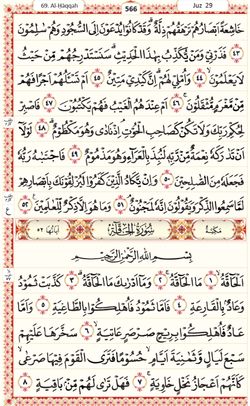 69. Al-Hāqqah 566 Juz 29
خَاشِعَةً أَبْصَارُهُمْ تَرْهَقُهُمْ ذِلَّةٌ ۖ وَقَدْ كَانُوا يُدْعَوْنَ إِلَى السُّجُودِ وَهُمْ سَالِمُونَ
﴿٤٣﴾ فَذَرْنِي وَمَنْ يُكَذِّبُ بِهَٰذَا الْحَدِيثِ ۖ سَنَسْتَدْرِجُهُمْ مِنْ حَيْثُ
لَا يَعْلَمُونَ ﴿٤٤﴾ وَأُمْلِي لَهُمْ ۚ إِنَّ كَيْدِي مَتِينٌ ﴿٤٥﴾ أَمْ تَسْأَلُهُمْ أَجْرًا فَهُمْ
مِنْ مَغْرَمٍ مُثْقَلُونَ ﴿٤٦﴾ أَمْ عِنْدَهُمُ الْغَيْبُ فَهُمْ يَكْتُبُونَ ﴿٤٧﴾ فَاصْبِرْ
لِحُكْمِ رَبِّكَ وَلَا تَكُنْ كَصَاحِبِ الْحُوتِ إِذْ نَادَىٰ وَهُوَ مَكْظُومٌ ﴿٤٨﴾ لَوْلَا
أَنْ تَدَارَكَهُ نِعْمَةٌ مِنْ رَبِّهِ لَنُبِذَ بِالْعَرَاءِ وَهُوَ مَذْمُومٌ ﴿٤٩﴾ فَاجْتَبَاهُ رَبُّهُ
فَجَعَلَهُ مِنَ الصَّالِحِينَ ﴿٥٠﴾ وَإِنْ يَكَادُ الَّذِينَ كَفَرُوا لَيُزْلِقُونَكَ بِأَبْصَارِهِمْ
لَمَّا سَمِعُوا الذِّكْرَ وَيَقُولُونَ إِنَّهُ لَمَجْنُونٌ ﴿٥١﴾ وَمَا هُوَ إِلَّا ذِكْرٌ لِلْعَالَمِينَ ﴿٥٢﴾
مَكِّيَّة سُورَةُ الْحَاقَّةِ آيَاتُهَا ٥٢
بِسْمِ اللَّهِ الرَّحْمَٰنِ الرَّحِيمِ
الْحَاقَّةُ ﴿١﴾ مَا الْحَاقَّةُ ﴿٢﴾ وَمَا أَدْرَاكَ مَا الْحَاقَّةُ ﴿٣﴾ كَذَّبَتْ ثَمُودُ
وَعَادٌ بِالْقَارِعَةِ ﴿٤﴾ فَأَمَّا ثَمُودُ فَأُهْلِكُوا بِالطَّاغِيَةِ ﴿٥﴾ وَأَمَّا
عَادٌ فَأُهْلِكُوا بِرِيحٍ صَرْصَرٍ عَاتِيَةٍ ﴿٦﴾ سَخَّرَهَا عَلَيْهِمْ
سَبْعَ لَيَالٍ وَثَمَانِيَةَ أَيَّامٍ حُسُومًا فَتَرَى الْقَوْمَ فِيهَا صَرْعَىٰ
كَأَنَّهُمْ أَعْجَازُ نَخْلٍ خَاوِيَةٍ ﴿٧﴾ فَهَلْ تَرَىٰ لَهُمْ مِنْ بَاقِيَةٍ ﴿٨﴾